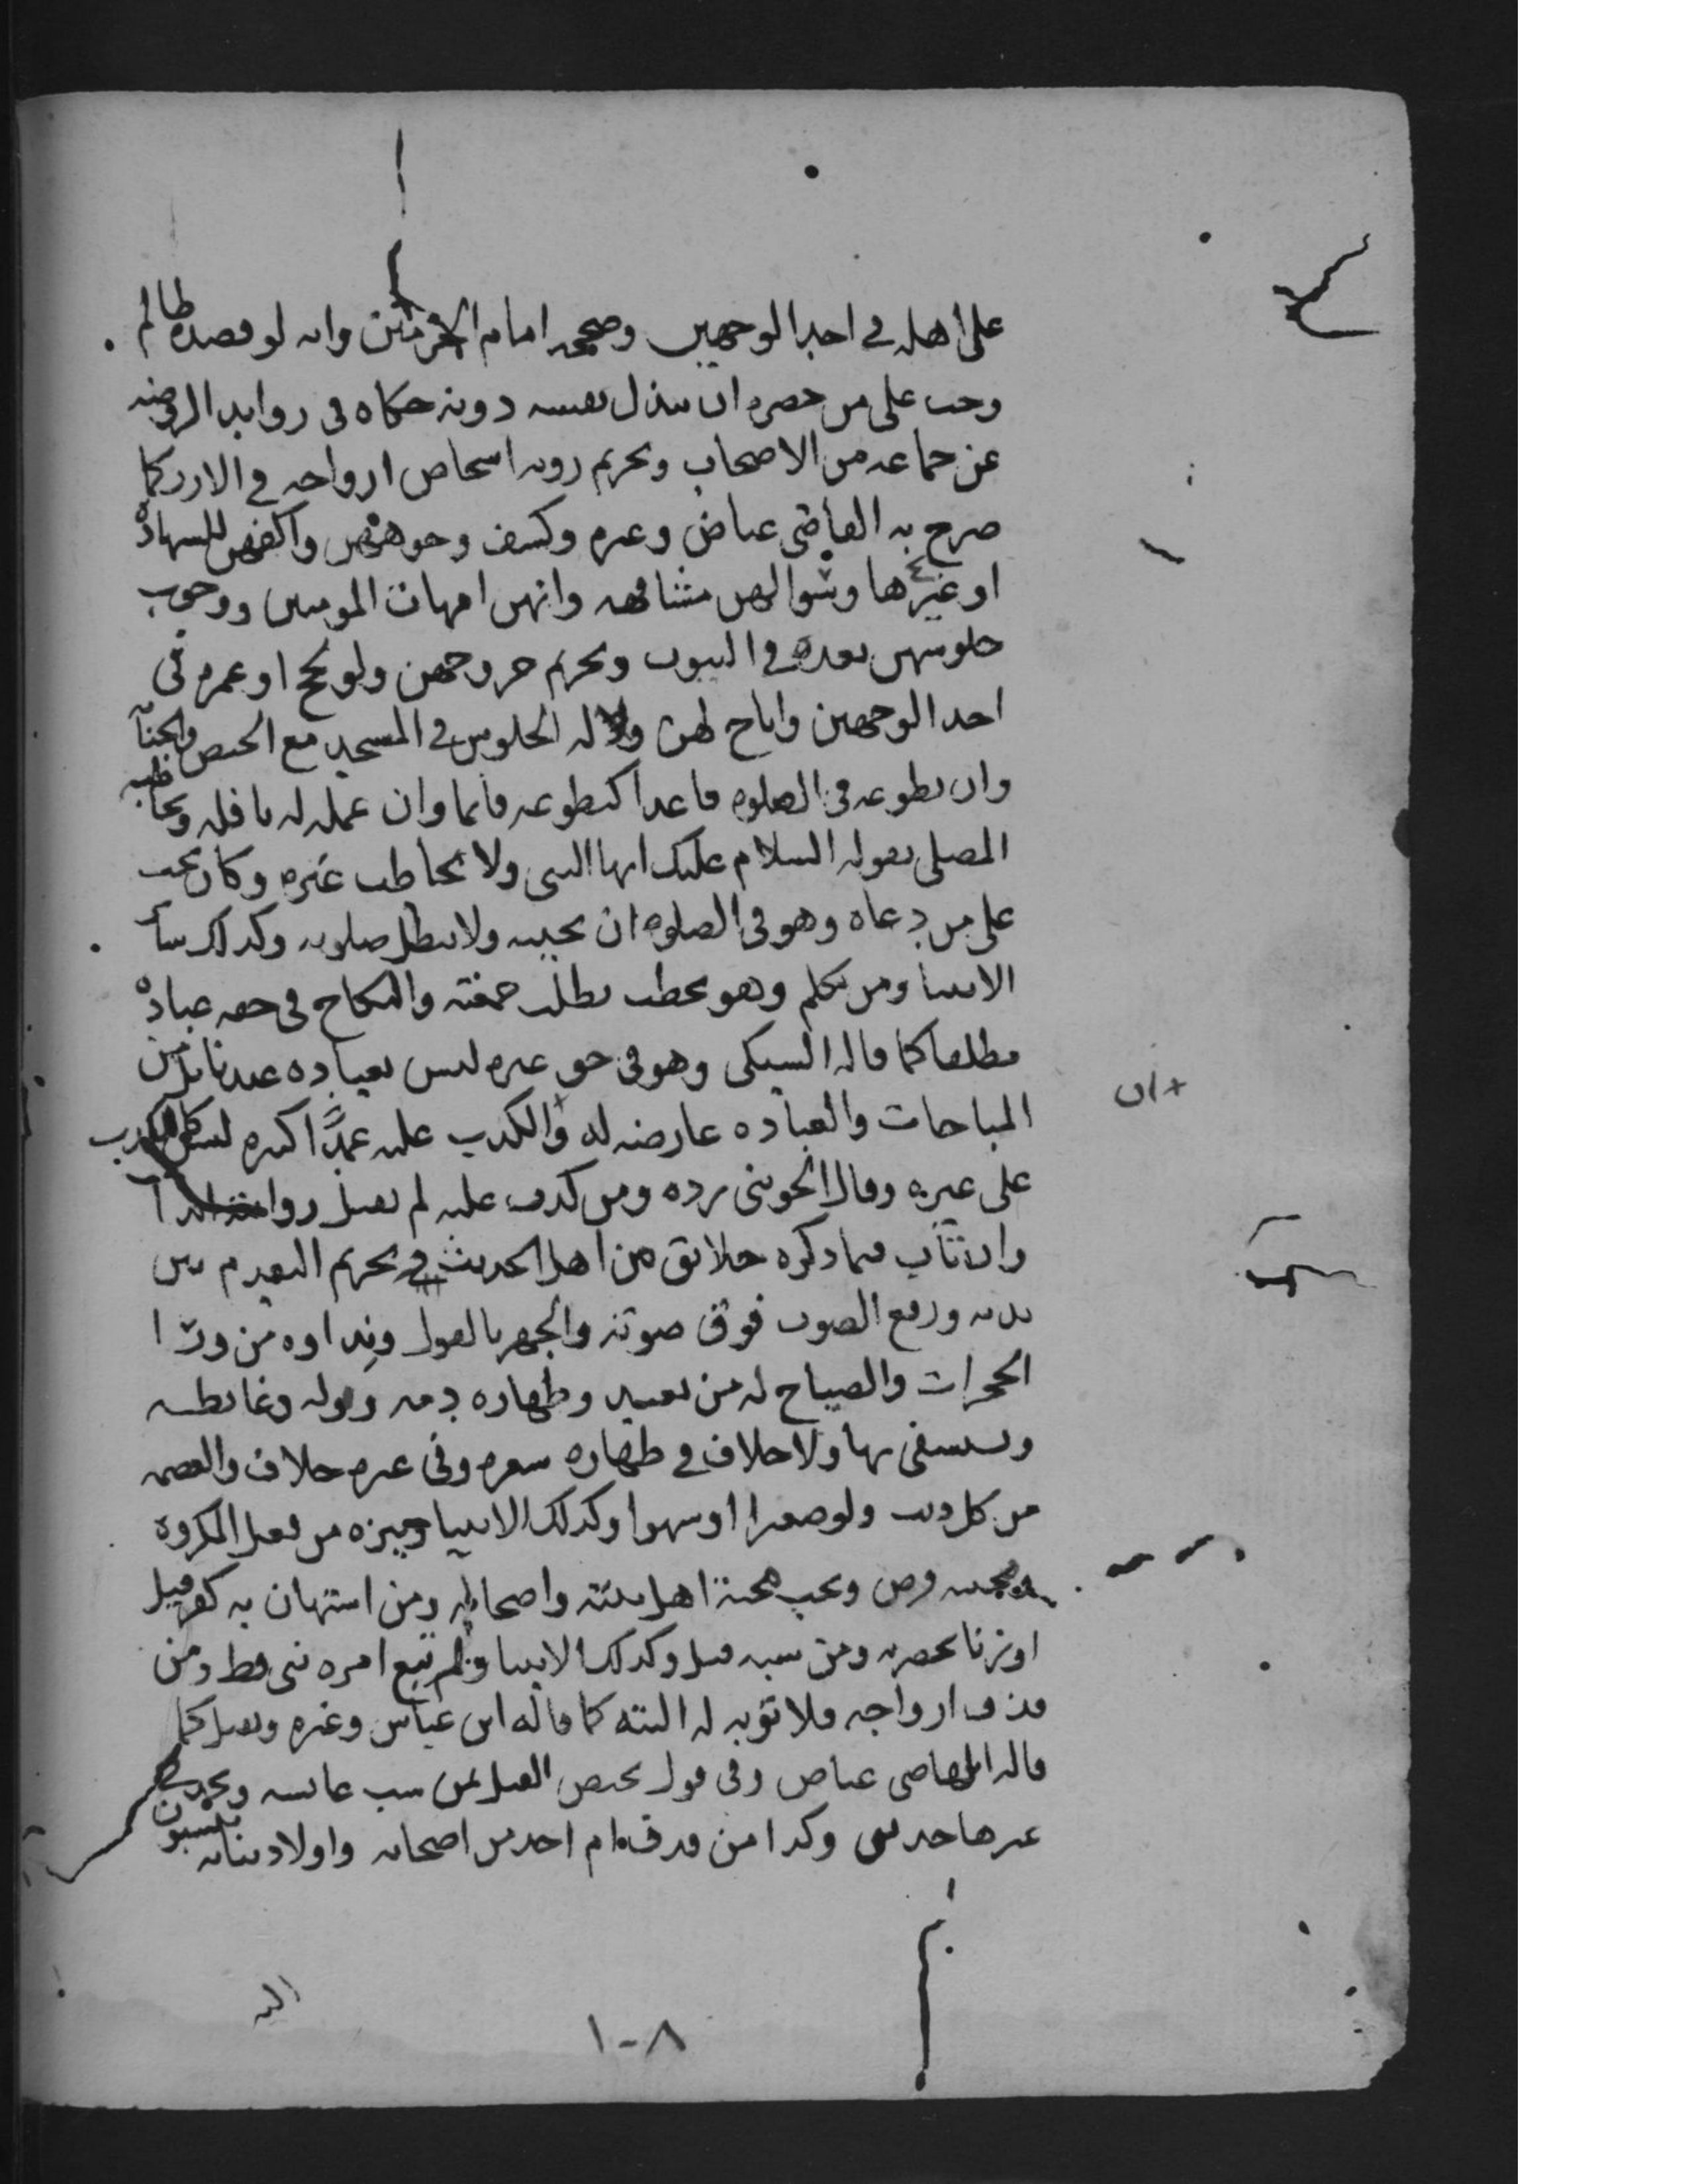 على اهله في احد الوجهين وصححه امام الحرمين وانه لو قصده ظالم
وجب على من حضره ان يبذل نفسه دونه حكاه في زوايد الروضه
عن جماعه من الاصحاب وتحريم رويه اشخاص ازواجه في الازر كما
صرح به القاضي عياض وغيره وكشف وجوههن واكفهن للشهادة
او غيرها وسوالهن مشافهه وانهن امهات المومنين ووجوب
جلوسهن بعده في البيوت وتحريم خروجهن ولو لحج او عمره في
احد الوجهين واباح لهن وله الجلوس في المسجد مع الحيض والجنابة
وان تطوعه في الصلوه قاعدا كتطوعه قايما وان عمله له نافله ويخاطبه
المصلي بقوله السلام عليك ايها النبي ولا يخاطب غيره وكان يجب
على من دعاه وهو في الصلوه ان يجيبه ولا تبطل صلوته وكذلك سائر
الانبيا ومن تكلم وهو يخطب بطلت جمعته والنكاح في حقه عبادة
مطلقا كما قاله السبكي وهو في حق غيره ليس بعباده عندنا بل من
المباحات والعباده عارضه له والكذب عليه عمدًا كبيره ليس كالكذب
على غيره وقال الجويني رده ومن كذب عليه لم تقبل روايته ابدا
وان تاب فيما ذكره خلايق من اهل الحديث وتحريم التقدم بين
يديه ورفع الصوت فوق صوته والجهر بالقول ونداوه من ورا
الحجرات والصياح له من بعيد وطهاره دمه وبوله وغائطه
ويستشفى بها ولا خلاف في طهاره شعره وفي غيره خلاف والعصمه
من كل ذنب ولو صغيرا او سهوا وكذلك الانبيا وينزه من فعل المكروه
ومحبته فرض وتجب محبة اهل بيته واصحابه ومن استهان به كفر قيل
او زنا بحضرته ومن سبه قتل وكذلك الانبيا ولم تبغ امراه نبي قط ومن
قذف ازواجه فلا توبه له البته كما قاله ابن عباس وغيره ويقتل كما
قاله القاضي عياض وفي قول يختص القتل بمن سب عائشه ويحد في
غيرها حدين وكذا من قذف ام احد من اصحابه واولاد بناته ينسبون
اليه
١٠٨